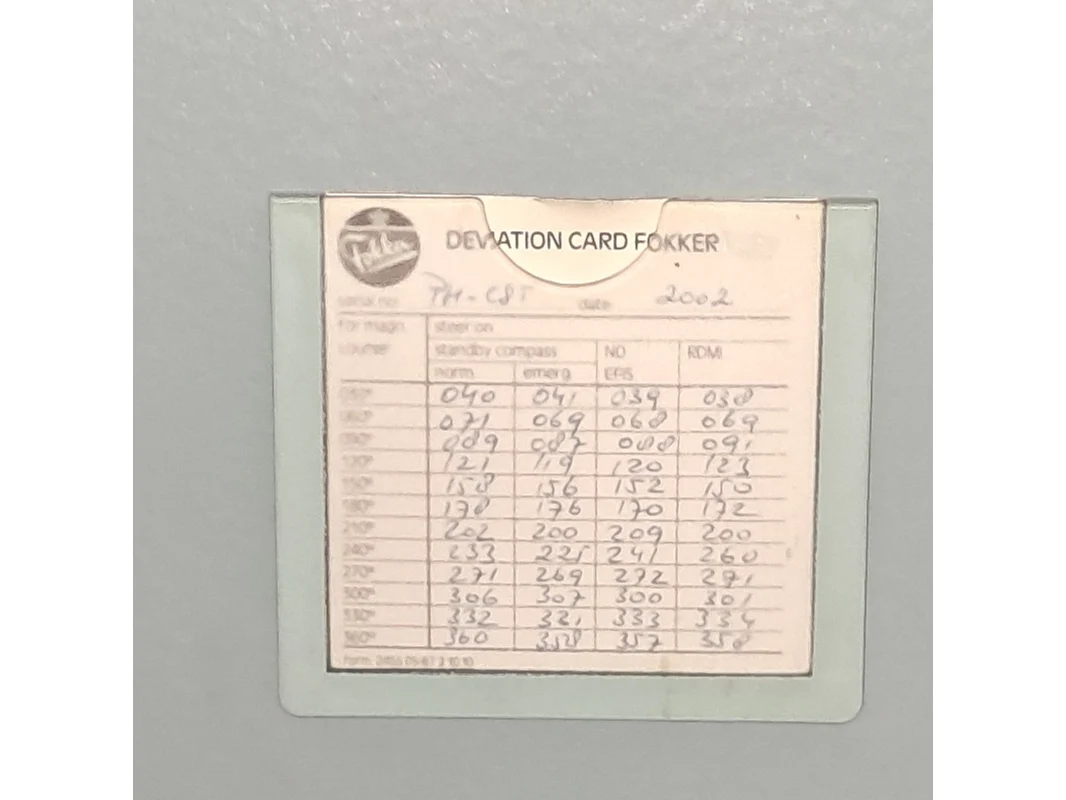 Fokker
DEVIATION CARD FOKKER
serial no. PH-CST date 2002
for magn. steer on
course standby compass ND RDMI
norm emerg EFIS
030° 040 041 039 038
060° 071 069 068 069
090° 089 087 088 091
120° 121 119 120 123
150° 158 156 152 150
180° 178 176 170 172
210° 202 200 209 200
240° 233 241 260
270° 271 269 272 271
300° 306 307 300 301
330° 332 321 333 334
360° 360 358 357 358